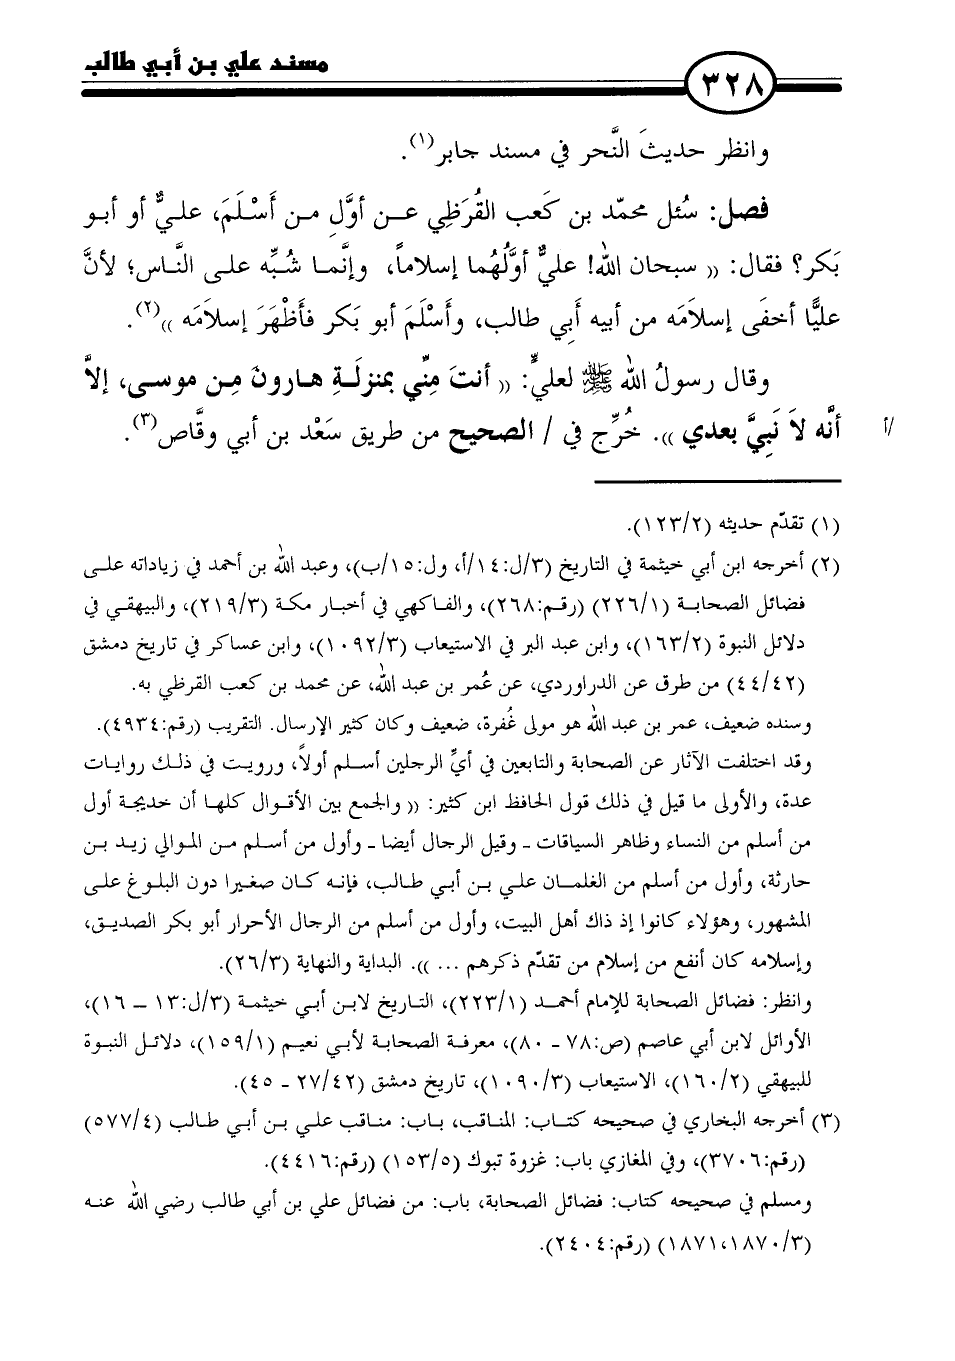 مسند علي بن أبي طالب
٣٢٨
وانظر حديثَ النَّحر في مسند جابر(١).
فصل: سُئل محمّد بن كَعب القُرَظِي عـن أوَّلِ مـن أَسْـلَمَ، علـيٌّ أو أبـو
بَكر؟ فقال: (( سبحان الله! عليٌّ أوَّلُهُما إسلاماً، وإنَّمـا شُـبِّه علـى النَّـاس؛ لأنَّ
عليًّا أخفَى إسلاَمَه من أبيه أبي طالب، وأَسْلَمَ أبو بَكر فأَظْهَرَ إسلاَمَه ))(٢).
وقال رسولُ الله ﷺ لعليٍّ: (( أنتَ مِنِّي بمنزلَـةِ هـارونَ مِـن موسـى، إلاَّ
أنَّه لاَ نَبِيَّ بعدي )). خُرِّج في / الصحيح من طريق سَعْد بن أبي وقَّاص(٣).
/أ
(١) تقدّم حديثه (١٢٣/٢).
(٢) أخرجه ابن أبي خيثمة في التاريخ (٣/ل:١٤/أ، ول:١٥/ب)، وعبد الله بن أحمد في زياداته علـى
فضائل الصحابـة (٢٢٦/١) (رقـم:٢٦٨)، والفـاكهي في أخبـار مكـة (٢١٩/٣)، والبيهقـي في
دلائل النبوة (١٦٣/٢)، وابن عبد البر في الاستيعاب (١٠٩٢/٣)، وابن عساكر في تاريخ دمشق
(٤٤/٤٢) من طرق عن الدراوردي، عن عُمر بن عبد الله، عن محمد بن كعب القرظي به.
وسنده ضعيف، عمر بن عبد الله هو مولى غُفرة، ضعيف وكان كثير الإرسال. التقريب (رقم:٤٩٣٤).
وقد اختلفت الآثار عن الصحابة والتابعين في أيِّ الرجلين أسـلم أولاً، ورويـت في ذلـك روايـات
عدة، والأولى ما قيل في ذلك قول الحافظ ابن كثير: (( والجمع بين الأقوال كلهـا أن خديجـة أول
من أسلم من النساء وظاهر السياقات ـ وقيل الرجال أيضا ـ وأول من أسـلم مـن المـوالي زيـد بـن
حارثة، وأول من أسلم من الغلمـان علـي بـن أبـي طـالب، فإنـه كـان صغيرا دون البلـوغ علـى
المشهور، وهؤلاء كانوا إذ ذاك أهل البيت، وأول من أسلم من الرجال الأحرار أبو بكر الصديـق،
وإسلامه كان أنفع من إسلام من تقدّم ذكرهم ... )). البداية والنهاية (٢٦/٣).
وانظر: فضائل الصحابة للإمام أحمـد (٢٢٣/١)، التـاريخ لابـن أبـي خيثمـة (٣/ل:١٣ ـ ١٦)،
الأوائل لابن أبي عاصم (ص:٧٨ ـ ٨٠)، معرفـة الصحابـة لأبـي نعيـم (١٥٩/١)، دلائـل النبـوة
للبيهقي (١٦٠/٢)، الاستيعاب (١٠٩٠/٣)، تاريخ دمشق (٢٧/٤٢ ـ ٤٥).
(٣) أخرجه البخاري في صحيحه كتـاب: المناقب، بـاب: منـاقب علـي بـن أبـي طـالب (٥٧٧/٤)
(رقم:٣٧٠٦)، وفي المغازي باب: غزوة تبوك (١٥٣/٥) (رقم:٤٤١٦).
ومسلم في صحيحه كتاب: فضائل الصحابة، باب: من فضائل علي بن أبي طالب رضي الله عنـه
(١٨٧١،١٨٧٠/٣) (رقم:٢٤٠٤).